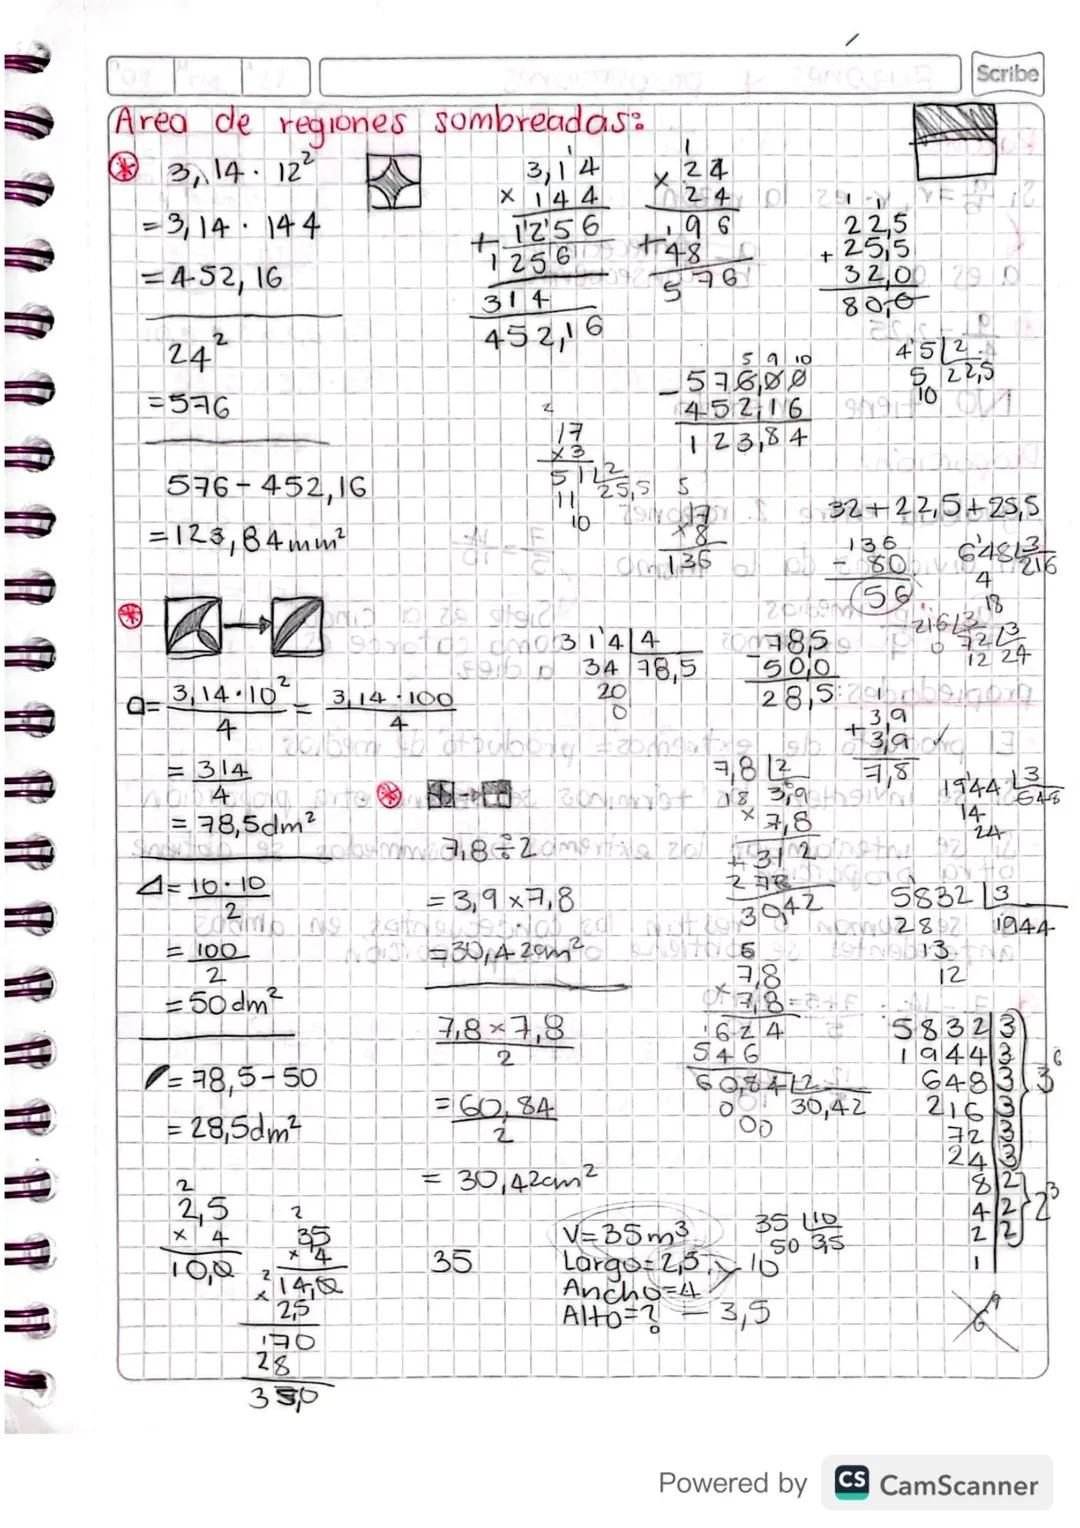 Scribe
Area de regiones sombreadas:
3,14 · 12²
= 3,14 · 144
= 452,16
24²
= 576
576 - 452,16
= 123,84 mm²
3,14
× 144
1256
+ 1256
314
452,16
24
× 24
96
+ 48
576
22,5
+ 25,5
32,0
80,0
45 2
5 22,5
10
5 9 10
576,00
- 452,16
123,84
2
17
×3
51 2
11 25,5
10
5
17
×8
136
32+22,5+25,5
136
- 80
56
648 3
4 216
18
216 3
0 72 3
12 24
a= 3,14·10² / 4 = 3,14·100 / 4
= 314 / 4
= 78,5dm²
314 4
34 78,5
20
0
78,5
- 50,0
28,5
3,9
+ 3,9
7,8
= 10·10 / 2
= 100 / 2
= 50 dm²
= 78,5-50
= 28,5dm²
7,8÷2
= 3,9×7,8
= 30,42cm²
7,8×7,8 / 2
= 60,84 / 2
= 30,42cm²
7,8 2
18 3,9
× 7,8
+ 312
273
30,42
6
7,8
× 7,8
624
546
60,84 2
0 30,42
00
1944 3
14 648
24
5832 3
28 1944
13
12
5832 3
1944 3
648 3
216 3
72 3
24 3
8 2
4 2
2 2
1
3⁶
2³
2
2,5
× 4
10,0
2
35
× 4
14,0
× 25
170
28
35,0
35
V=35m³
Largo=2,5
10
Ancho=4
Alto=? - 3,5
35 10
50 3,5
Powered by CS CamScanner